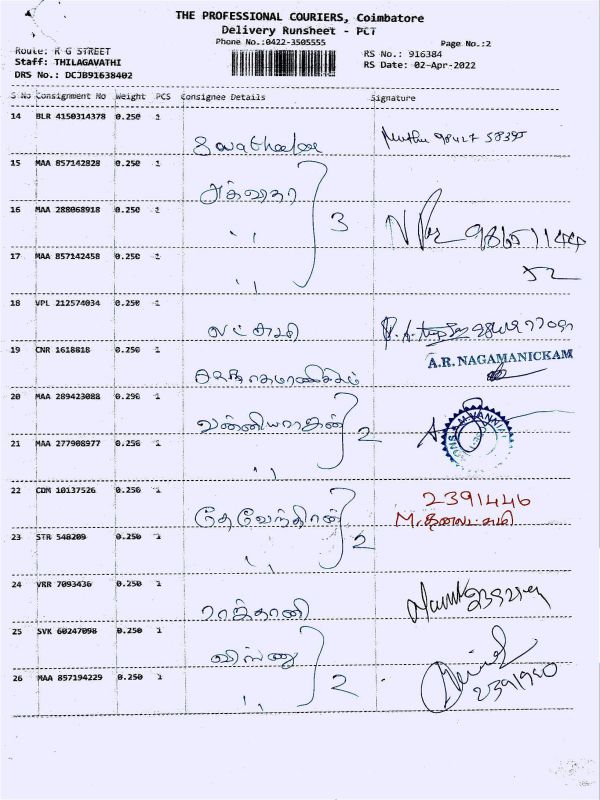 THE PROFESSIONAL COURIERS, Coimbatore
Delivery Runsheet - PCT
Phone No.:0422-3505555
Page No.:2
Route: R G STREET
RS No.: 916384
Staff: THILAGAVATHI
RS Date: 02-Apr-2022
DRS No.: DCJB91638402
S No Consignment No Weight PCS Consignee Details Signature
14 BLR 4150314378 0.250 1
Muthu 98427 58395
15 MAA 857142828 0.250 1
16 MAA 288068918 0.250 1
3
17 MAA 857142458 0.250 1
52
18 VPL 212574034 0.250 1
லட்சுமி
19 CNR 1618818 0.250 1
A.R. NAGAMANICKAM
நாகமாணிக்கம்
20 MAA 289423088 0.296 1
வன்னியராஜன்
2
21 MAA 277908977 0.256 1
22 CDM 10137526 0.256 1
2391446
தேவேந்திரன்
M. தனலட்சுமி
23 STR 548209 0.250 1
2
24 VRR 7093436 0.250 1
ராத்தானி
25 SVK 60247098 0.250 1
விஷ்ணு
26 MAA 857194229 0.250 1
2